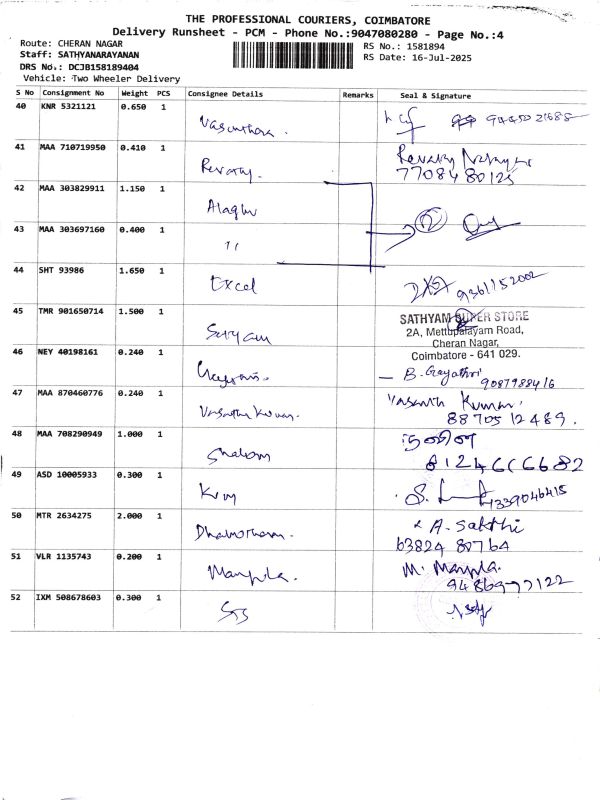 THE PROFESSIONAL COURIERS, COIMBATORE
Delivery Runsheet - PCM - Phone No.:9047080280 - Page No.:4
Route: CHERAN NAGAR
RS No.: 1581894
Staff: SATHYANARAYANAN
RS Date: 16-Jul-2025
DRS No.: DCJB158189404
Vehicle: Two Wheeler Delivery
S No Consignment No Weight PCS Consignee Details Remarks Seal & Signature
40 KNR 5321121 0.650 1
Vasanthara. 9445021688
41 MAA 710719950 0.410 1
Revathy. Revathy
7708480125
42 MAA 303829911 1.150 1
Alaghu
43 MAA 303697160 0.400 1
11
44 SHT 93986 1.650 1
Excel 9361152002
45 TMR 901650714 1.500 1
SATHYAM SUPER STORE
2A, Mettupalayam Road,
Cheran Nagar,
Coimbatore - 641 029.
Satyam
46 NEY 40198161 0.240 1
B. Gayathri
47 MAA 870460776 0.240 1
Vasantha Kumar. Vasanth Kumar.
8870512489.
48 MAA 708290949 1.000 1
Shalom நளினி
8124666682
49 ASD 10005933 0.300 1
50 MTR 2634275 2.000 1
A. Sakthi
63824 80764
51 VLR 1135743 0.200 1
Manjula. M. Manjula.
9486977122
52 IXM 508678603 0.300 1